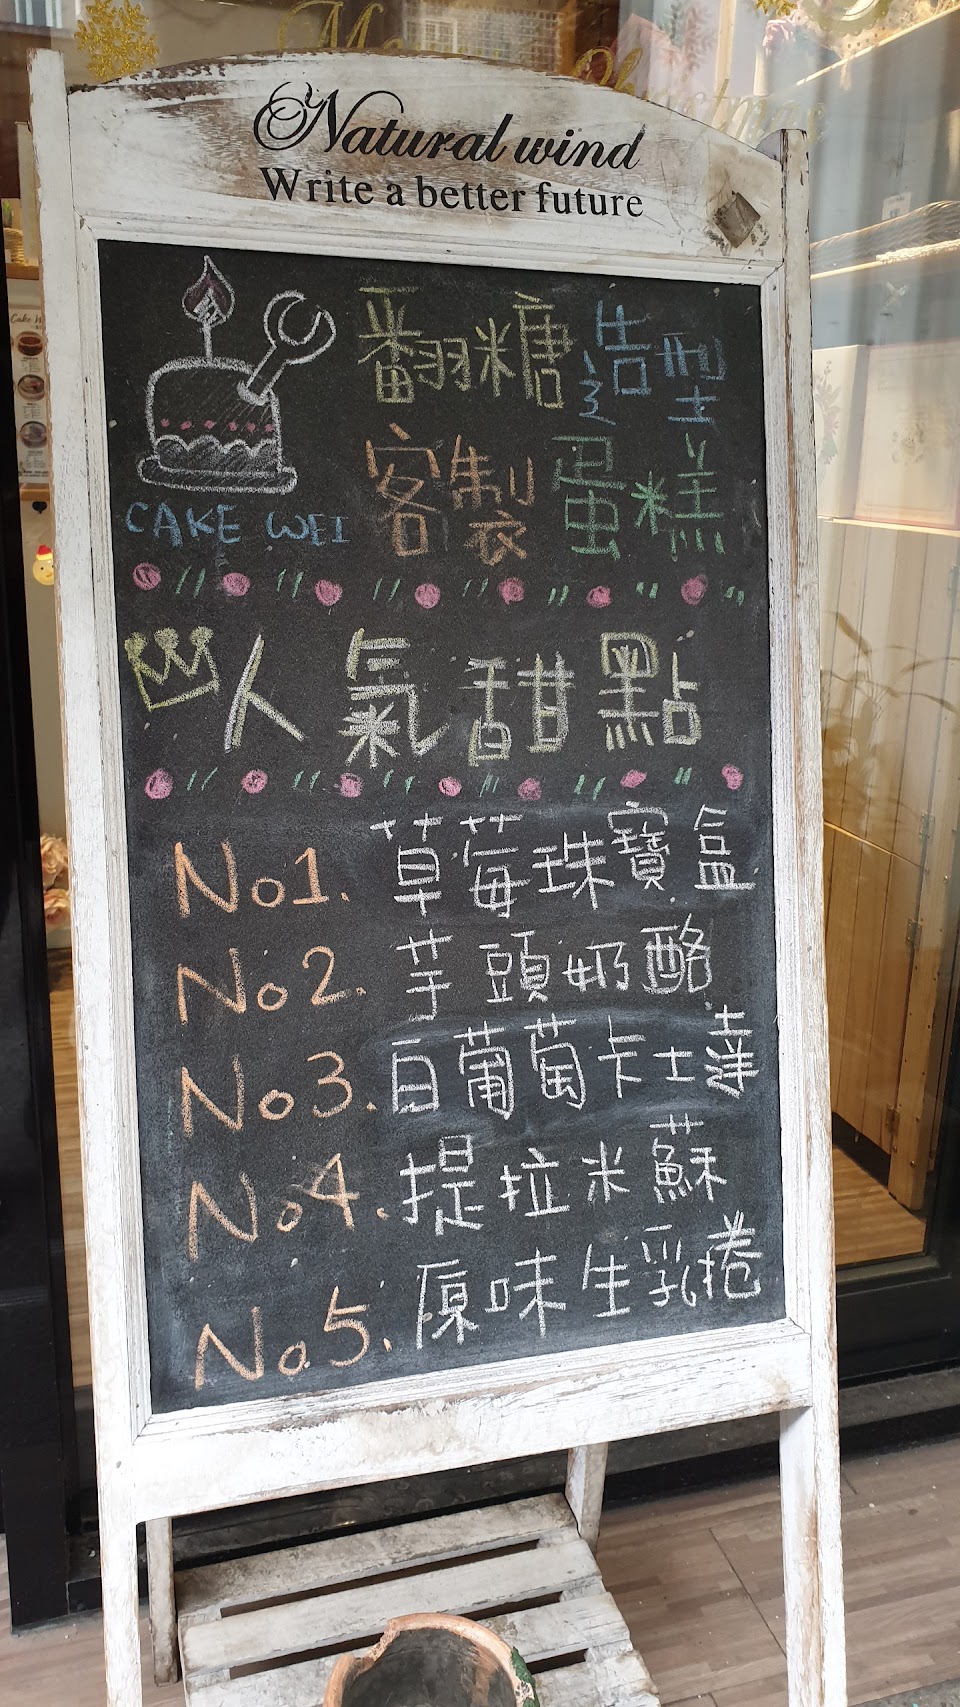 Natural wind
Write a better future
翻糖造型
客製蛋糕
CAKE WEI
人氣甜點
No1. 草莓珠寶盒
No2. 芋頭奶酪
No3. 白葡萄卡士達
No4. 提拉米蘇
No5. 原味生乳捲